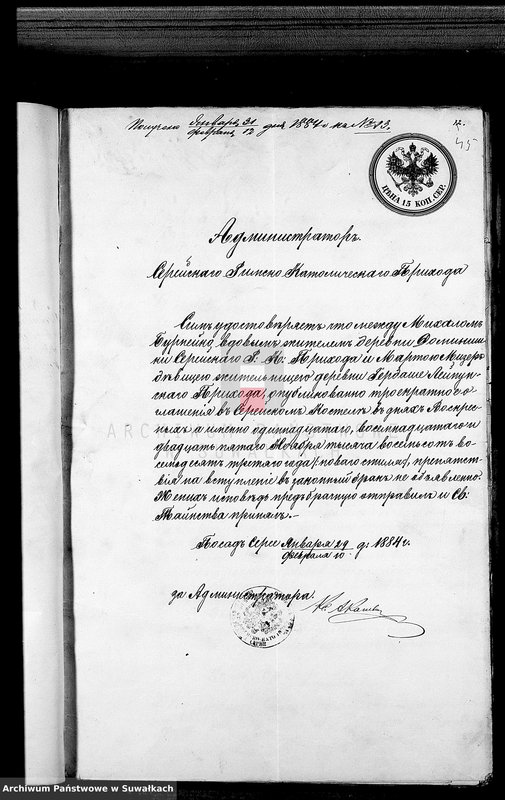 Получено Января 31 / Февраля 12 дня 1884 г. на № 13.
45
ЦѢНА 15 КОП. СЕР.
Администраторъ
Серейскаго Римско Католическаго Прихода
Симъ удостовѣряетъ что между Михаломъ
вдовымъ жителемъ деревни
Серейскаго Р. К. Прихода и Мартою
дѣвицею жительницею деревни
Прихода, опубликованно троекратно о-
глашенія въ Серейскомъ Костелѣ въ дняхъ Воскрес-
ныхъ а именно одиннадцатаго, восемнадцатаго и
двадцать пятаго Ноября тысяча восемьсот во-
семьдесятъ третяго года /новаго стиля/, препятст-
вія на вступленіе въ законный бракъ не объявленно.
Женихъ исповѣдь предъбрачную отправилъ и Св:
Таинства принялъ.-
Посадъ Серее Января 29 / Февраля 10 д. 1884 г.
за Администратора
Archiwum Państwowe w Suwałkach